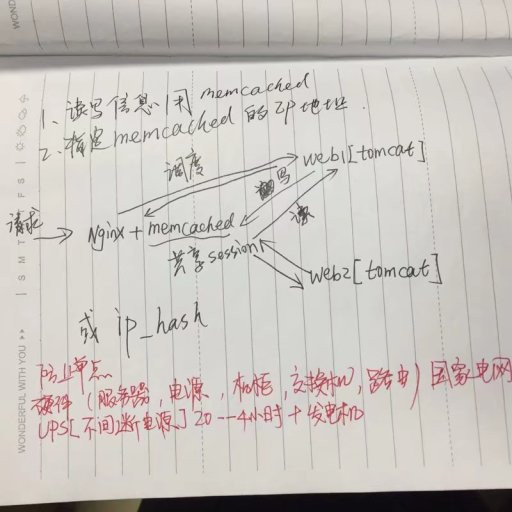 WONDERFUL
1、读写信息用memcached
2、指定memcached的IP地址.
调度
web1[tomcat]
写
读
请求
Nginx + memcached
共享session
web2[tomcat]
或 ip_hash
防止单点
硬件（服务器，电源，机柜，交换机，路由）国家电网
UPS[不间断电源] 20--4小时+发电机
WONDERFUL WITH YOU
S M T
F S